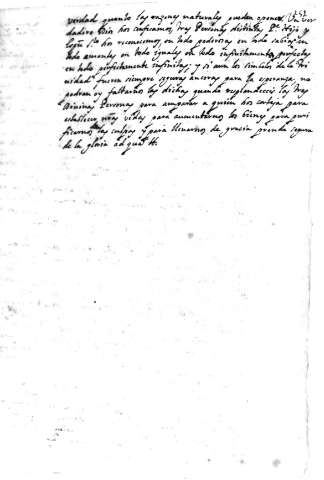 verdad quanto las razones naturales pueden oponer. Un Ver
dadero Dios nos confesamos, tres Personas distintas, P.e Hijo y
en todo poderosas en todo sabias, en
todo amantes en todo iguales en todo infinitamente perfectas
en todo perfectamente infinitas; y si aun los simulos de la Tri
nidad fueron siempre seguras ancoras para la esperanza, no
podran oy faltarnos las dichas quando resplandeceis las tres
Divinas Personas para amparar a quien os corteja para
establecer vidas para aumentarnos los bienes para puri
ficarnos las culpas y para llenarnos de gracia prenda segura
de la gloria ad quam &.